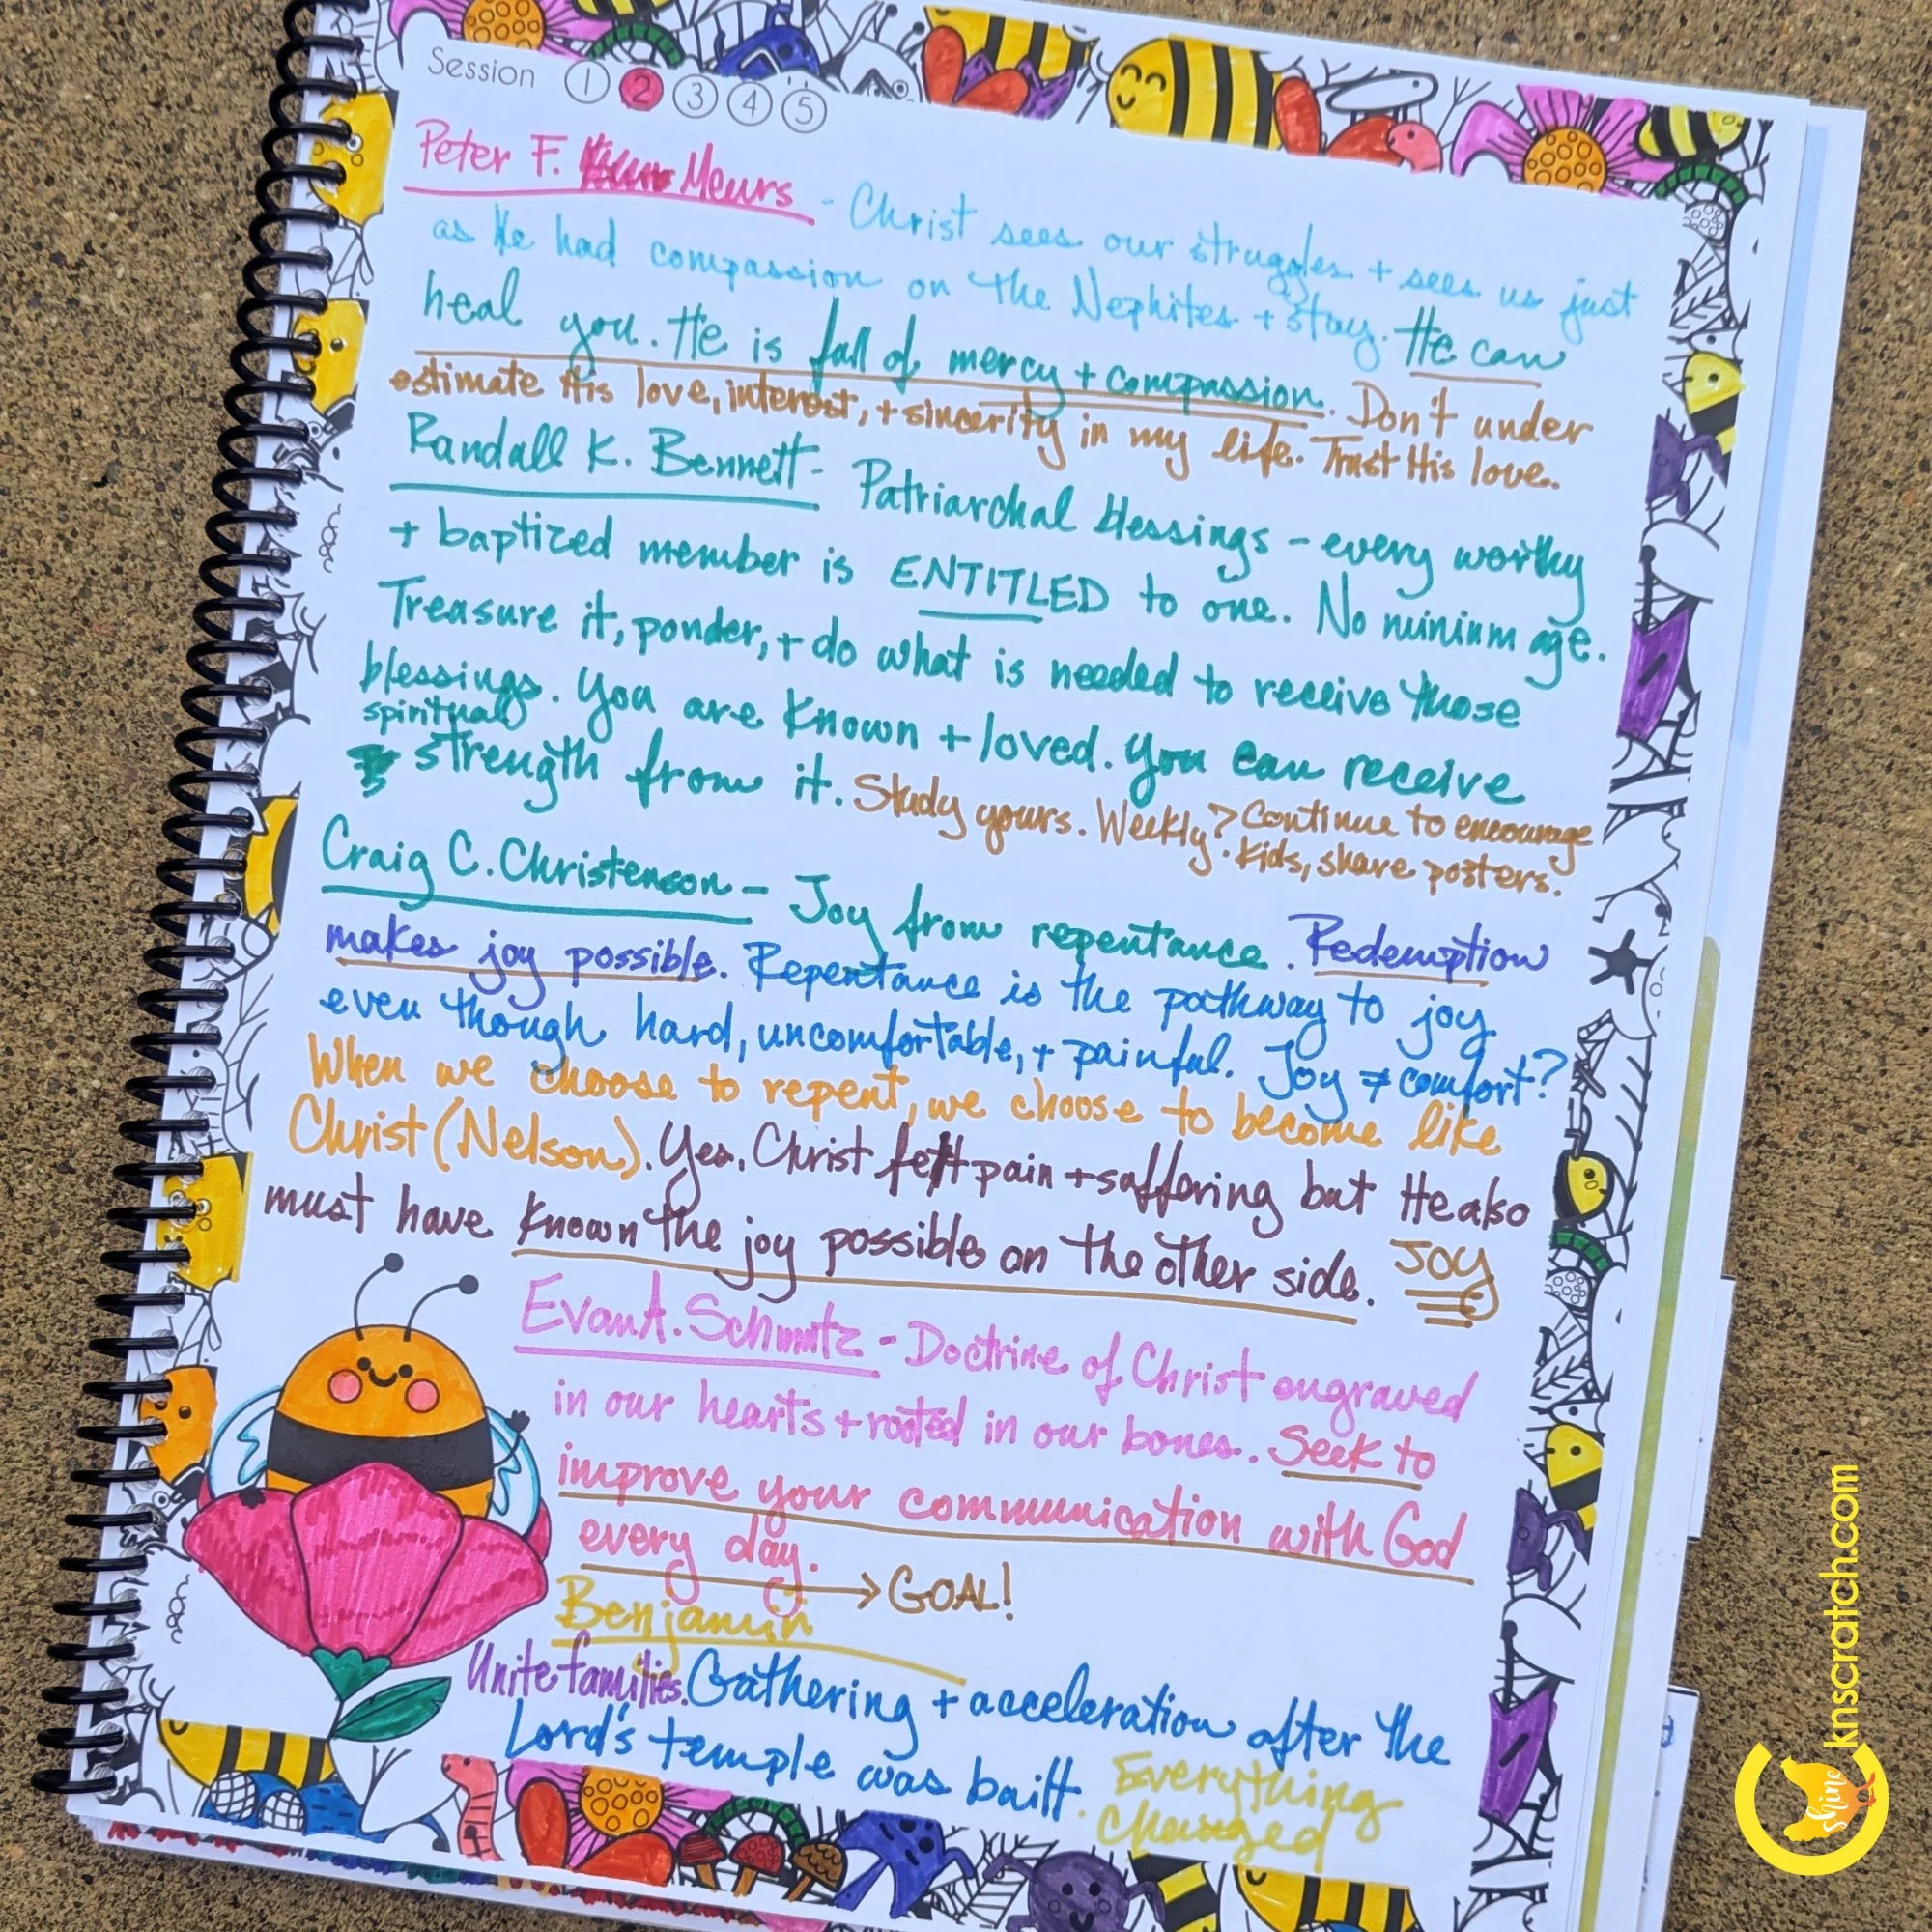 Session 1 2 3 4 5
Peter F. Meurs - Christ sees our struggles + sees us just
as He had compassion on the Nephites + stay. He can
heal you. He is full of mercy + compassion. Don't under
estimate His love, interest, + sincerity in my life. Trust His love.
Randall K. Bennett - Patriarchal blessings - every worthy
+ baptized member is ENTITLED to one. No minium age.
Treasure it, ponder, + do what is needed to receive those
blessings. You are known + loved. You can receive
spiritual
strength from it. Study yours. Weekly? Continue to encourage
kids, share posters.
Craig C. Christenson - Joy from repentance. Redemption
makes joy possible. Repentance is the pathway to joy
even though hard, uncomfortable, + painful. Joy ≠ comfort?
When we choose to repent, we choose to become like
Christ (Nelson). Yes, Christ felt pain + suffering but He also
must have known the joy possible on the other side. JOY
Evan A. Schmutz - Doctrine of Christ engraved
in our hearts + rooted in our bones. Seek to
improve your communication with God
every day. → GOAL!
Benjamin
Unite families. Gathering + acceleration after the
Lord's temple was built. Everything
changed
knscratch.com
Shine